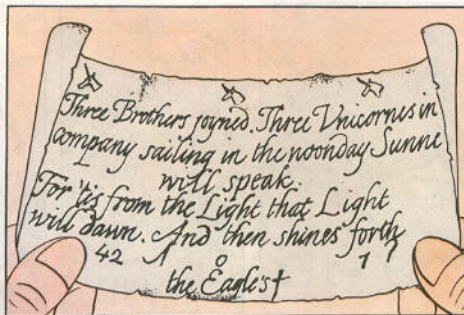 Three Brothers joyned. Three Vnicornes in
company sailing in the noonday Sunne
will speak.
For 'tis from the Light that Light
will dawn. And then shines forth
42 1 0 7 7
the Eagle's†